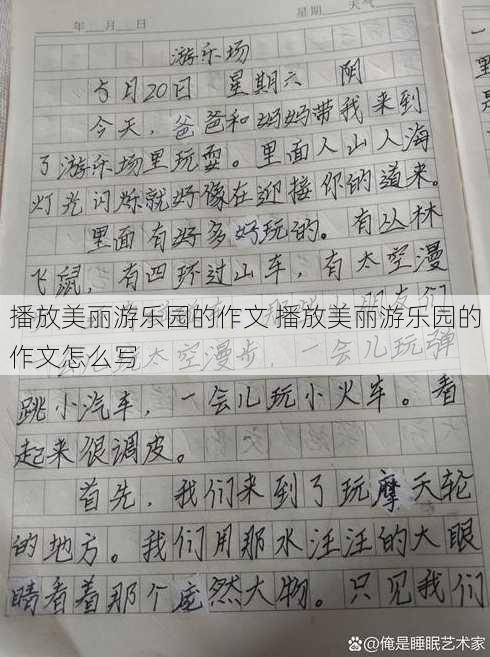 年 月 日 星期 天气
游乐场
5月20日 星期六 阴
今天，爸爸和妈妈带我来到
了游乐场里玩耍。里面人山人海
灯光闪烁就好像在迎接你的道来。
里面有好多好玩的。有丛林
飞鼠，有四环过山车，有太空漫
播放美丽游乐园的作文 播放美丽游乐园的
作文怎么写
太空漫步，一会儿玩弹
跳小汽车，一会儿玩小火车。看
起来很调皮。
首先，我们来到了玩摩天轮
的地方。我们用那水汪汪的大眼
睛看着那个庞然大物。只见我们
@俺是睡眠艺术家